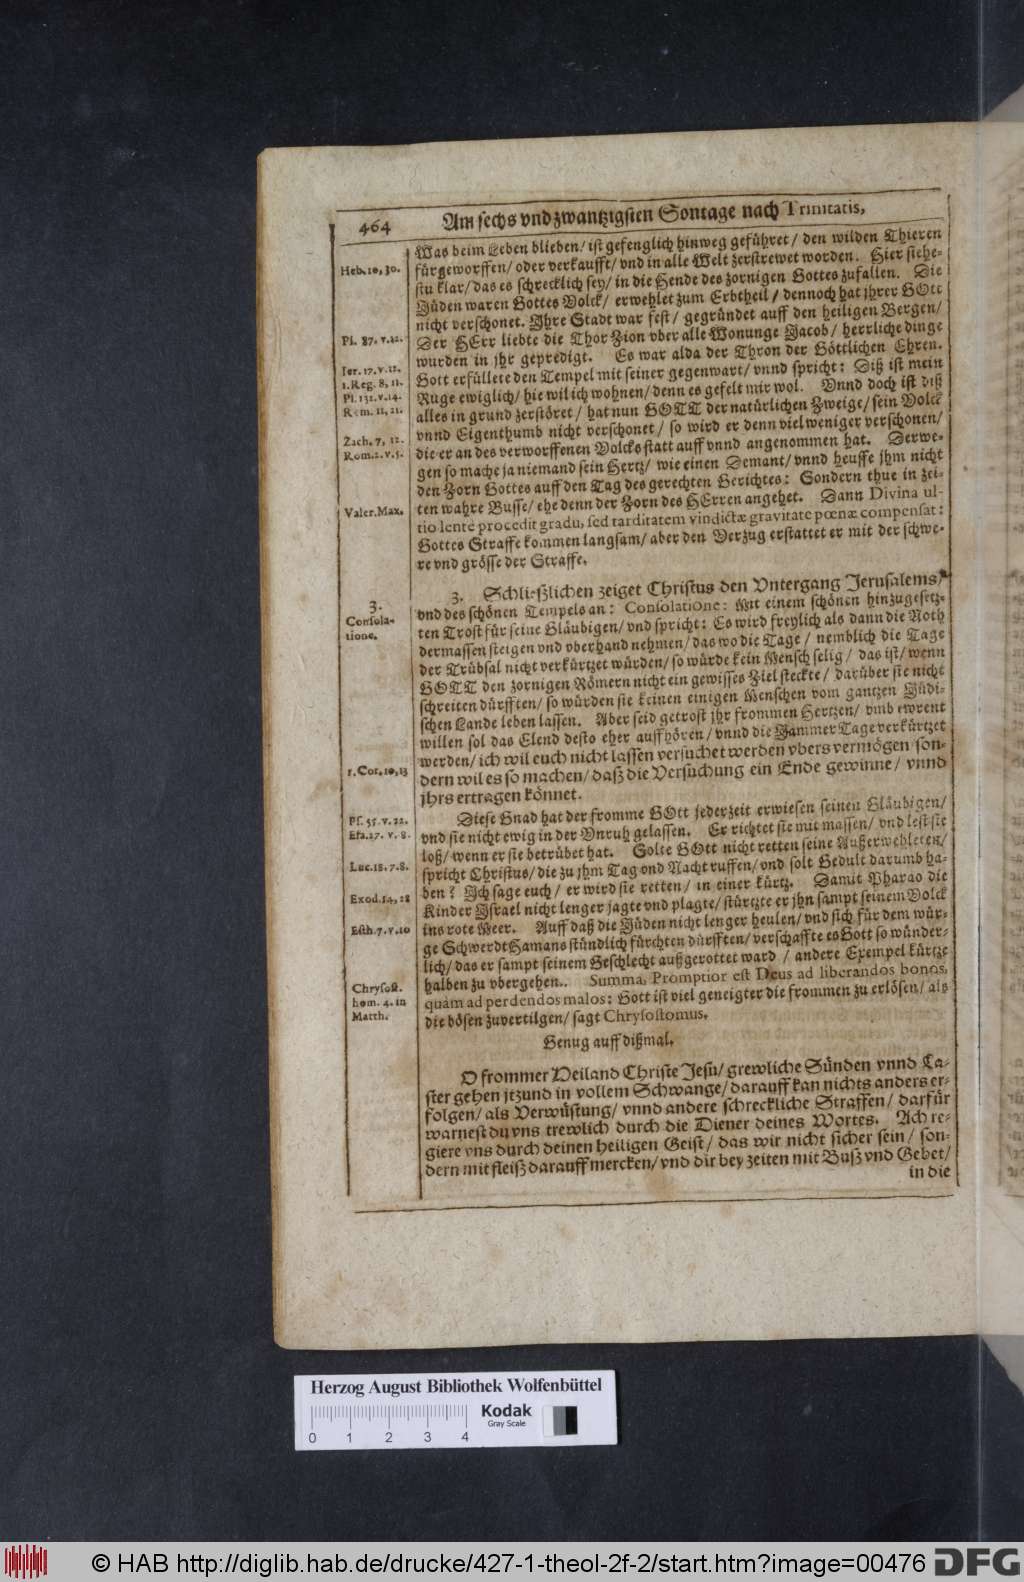 464
Am sechs vnd zwantzigsten Sontage nach Trinitatis,
Was beim Leben blieben/ ist gefenglich hinweg geführet/ den wilden Thieren
Heb. 10, 30.
fürgeworffen/ oder verkaufft/ vnd in alle Welt zerstrewet worden. Hier siehe-
stu klar/ das es schrecklich sey/ in die Hende des zornigen Gottes zufallen. Die
Jüden waren Gottes Volck/ erwehlet zum Erbtheil/ dennoch hat jhrer GOtt
nicht verschonet. Jhre Stadt war fest/ gegründet auff den heiligen Bergen/
Ps. 87. v. 22.
Der HErr liebte die Thor Zion vber alle Wonunge Jacob/ herrliche dinge
wurden in jhr gepredigt. Es war alda der Thron der Göttlichen Ehren.
Ier. 17. v. 12.
Gott erfüllete den Tempel mit seiner gegenwart/ vnnd spricht: Diß ist mein
1. Reg. 8, 11.
Ps. 132. v. 14.
Ruge ewiglich/ hie wil ich wohnen/ denn es gefelt mir wol. Vnnd doch ist diß
Rom. 11, 21.
alles in grund zerstöret/ hat nun GOTT der natürlichen Zweige/ sein Volck
vnnd Eigenthumb nicht verschonet/ so wird er denn viel weniger verschonen/
Zach. 7, 12.
die er an des verworffenen Volcks statt auff vnnd angenommen hat. Derwe-
Rom. 2. v. 5.
gen so mache ja niemand sein Hertz/ wie einen Demant/ vnnd heuffe jhm nicht
den Zorn Gottes auff den Tag des gerechten Gerichtes: Sondern thue in zei-
ten wahre Busse/ ehe denn der Zorn des HErren angehet. Dann Divina ul-
Valer. Max.
tio lente procedit gradu, sed tarditatem vindictæ gravitate pœnæ compensat:
Gottes Straffe kommen langsam/ aber den Verzug erstattet er mit der schwe-
re vnd grösse der Straffe.
3.
Consola-
tione.
3. Schließlichen zeiget Christus den Vntergang Jerusalems/
vnd des schönen Tempels an: Consolatione: Mit einem schönen hinzugesetz-
ten Trost für seine Gläubigen/ vnd spricht: Es wird freylich als dann die Noth
dermassen steigen vnd vberhand nehmen/ das wo die Tage/ nemblich die Tage
der Trübsal nicht verkürtzet würden/ so würde kein Mensch selig/ das ist/ wenn
GOTT den zornigen Römern nicht ein gewisses Ziel steckte/ darüber sie nicht
schreiten dürfften/ so würden sie keinen einigen Menschen vom gantzen Jüdi-
schen Lande leben lassen. Aber seid getrost jhr frommen Hertzen/ vmb ewrent
willen sol das Elend desto eher auffhören/ vnnd die Jammer Tage verkürtzet
1. Cor. 10, 13
werden/ ich wil euch nicht lassen versuchet werden vbers vermögen/ son-
dern wil es so machen/ daß die Versuchung ein Ende gewinne/ vnnd
jhrs ertragen könnet.
Ps. 55. v. 22.
Diese Gnad hat der fromme GOtt jederzeit erwiesen seinen Gläubigen/
Esa. 27. v. 8.
vnd sie nicht ewig in der Vnruh gelassen. Er richtet sie mit massen/ vnd lest sie
loß/ wenn er sie betrübet hat. Solte GOtt nicht retten seine Außerwehleten/
Luc. 18. 7. 8.
spricht Christus/ die zu jhm Tag vnd Nacht ruffen/ vnd solt Gedult darumb ha-
ben? Ich sage euch/ er wird sie retten/ in einer kürtz. Damit Pharao die
Exod. 14, 28
Kinder Israel nicht lenger jagte vnd plagte/ stürtzte er jhn sampt seinem Volck
ins rote Meer. Auff daß die Jüden nicht lenger heulen/ vnd sich für dem wür-
Esth. 7. v. 10
ge Schwerdt Hamans stündlich fürchten dürfften/ verschaffte es Gott so wünder-
lich/ das er sampt seinem Geschlecht außgerottet ward/ andere Exempel kürtze
halben zu vbergehen. Summa, Promptior est Deus ad liberandos bonos,
Chrysost.
hom. 4. in
Matth.
quàm ad perdendos malos: Gott ist viel geneigter die frommen zu erlösen/ als
die bösen zuvertilgen/ sagt Chrysostomus.
Genug auff dißmal.
O frommer Heiland Christe Jesu/ grewliche Sünden vnnd La-
ster gehen jtzund in vollem Schwange/ darauff kan nichts anders er-
folgen/ als Verwüstung/ vnnd andere schreckliche Straffen/ darfür
warnest du vns trewlich durch die Diener deines Wortes. Ach re-
giere vns durch deinen heiligen Geist/ das wir nicht sicher sein/ son-
dern mit fleiß darauff mercken/ vnd dir bey zeiten mit Buß vnd Gebet/
in die
Herzog August Bibliothek Wolfenbüttel
Kodak
Gray Scale
0 1 2 3 4
© HAB http://diglib.hab.de/drucke/427-1-theol-2f-2/start.htm?image=00476
DFG